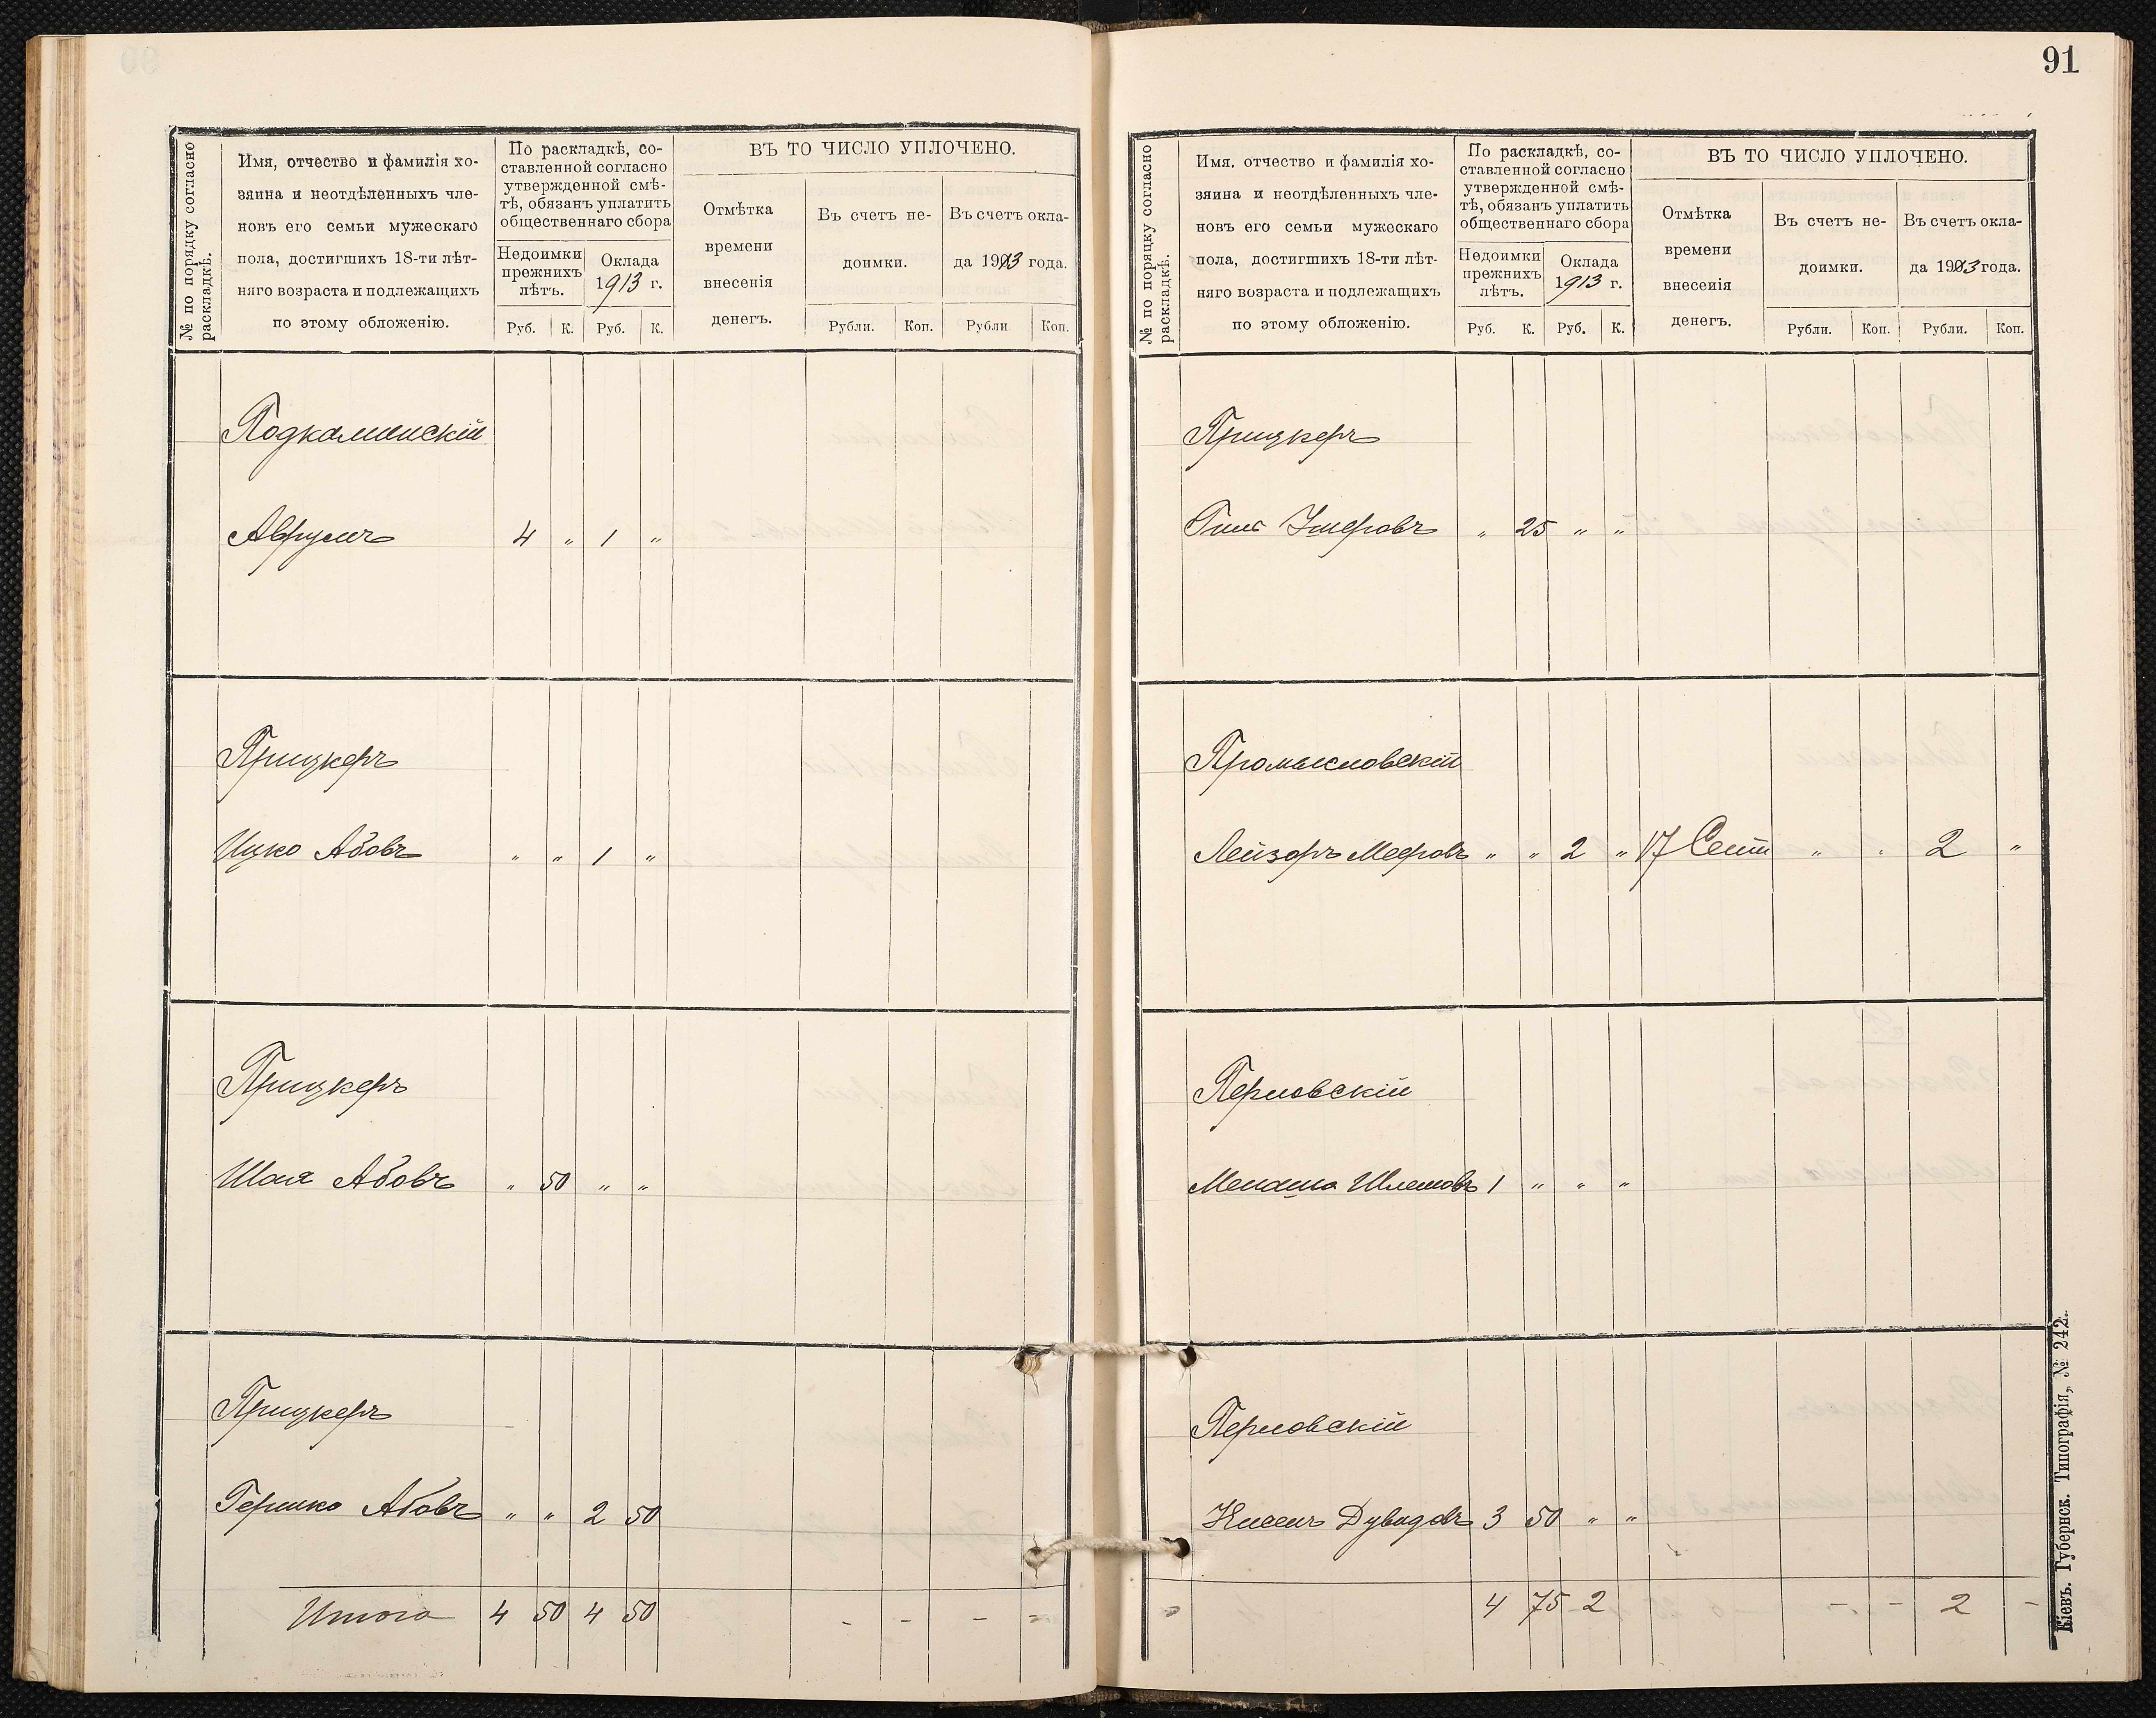 № по порядку согласно
раскладкѣ.
Имя, отчество и фамилія хо-
зяина и неотдѣленныхъ чле-
новъ его семьи мужескаго
пола, достигшихъ 18-ти лѣт-
няго возраста и подлежащихъ
по этому обложенію.
По раскладкѣ, со-
ставленной согласно
утвержденной смѣ-
тѣ, обязанъ уплатить
общественнаго сбора
Недоимки
прежнихъ
лѣтъ.
Оклада
1913 г.
Руб. К. Руб. К.
ВЪ ТО ЧИСЛО УПЛОЧЕНО.
Отмѣтка
времени
внесенія
денегъ.
Въ счетъ не-
доимки.
Въ счетъ окла-
да 1913 года.
Рубли. Коп. Рубли Коп.
Подкаминскій
Аврумъ 4 " 1 "
Прицкеръ
Ицко Абовъ " " 1 "
Прицкеръ
Шая Абовъ " 50 " "
Прицкеръ
Гершко Абовъ " " 2 50
Итого 4 50 4 50 - - - -
91
№ по порядку согласно
раскладкѣ.
Имя, отчество и фамилія хо-
зяина и неотдѣленныхъ чле-
новъ его семьи мужескаго
пола, достигшихъ 18-ти лѣт-
няго возраста и подлежащихъ
по этому обложенію.
По раскладкѣ, со-
ставленной согласно
утвержденной смѣ-
тѣ, обязанъ уплатить
общественнаго сбора
Недоимки
прежнихъ
лѣтъ.
Оклада
1913 г.
Руб. К. Руб. К.
ВЪ ТО ЧИСЛО УПЛОЧЕНО.
Отмѣтка
времени
внесенія
денегъ.
Въ счетъ не-
доимки.
Въ счетъ окла-
да 1913 года.
Рубли. Коп. Рубли. Коп.
Прицкеръ
" 25 " "
Промысловскій
Лейзоръ Меровъ " " 2 " 17 Сент " " 2 "
Перловскій
Менаша Шлемовъ 1 " " "
Перловскій
Дувидовъ 3 50 " "
4 75 2 - - 2 -
Кіевъ. Губернск. Типографія, № 242.